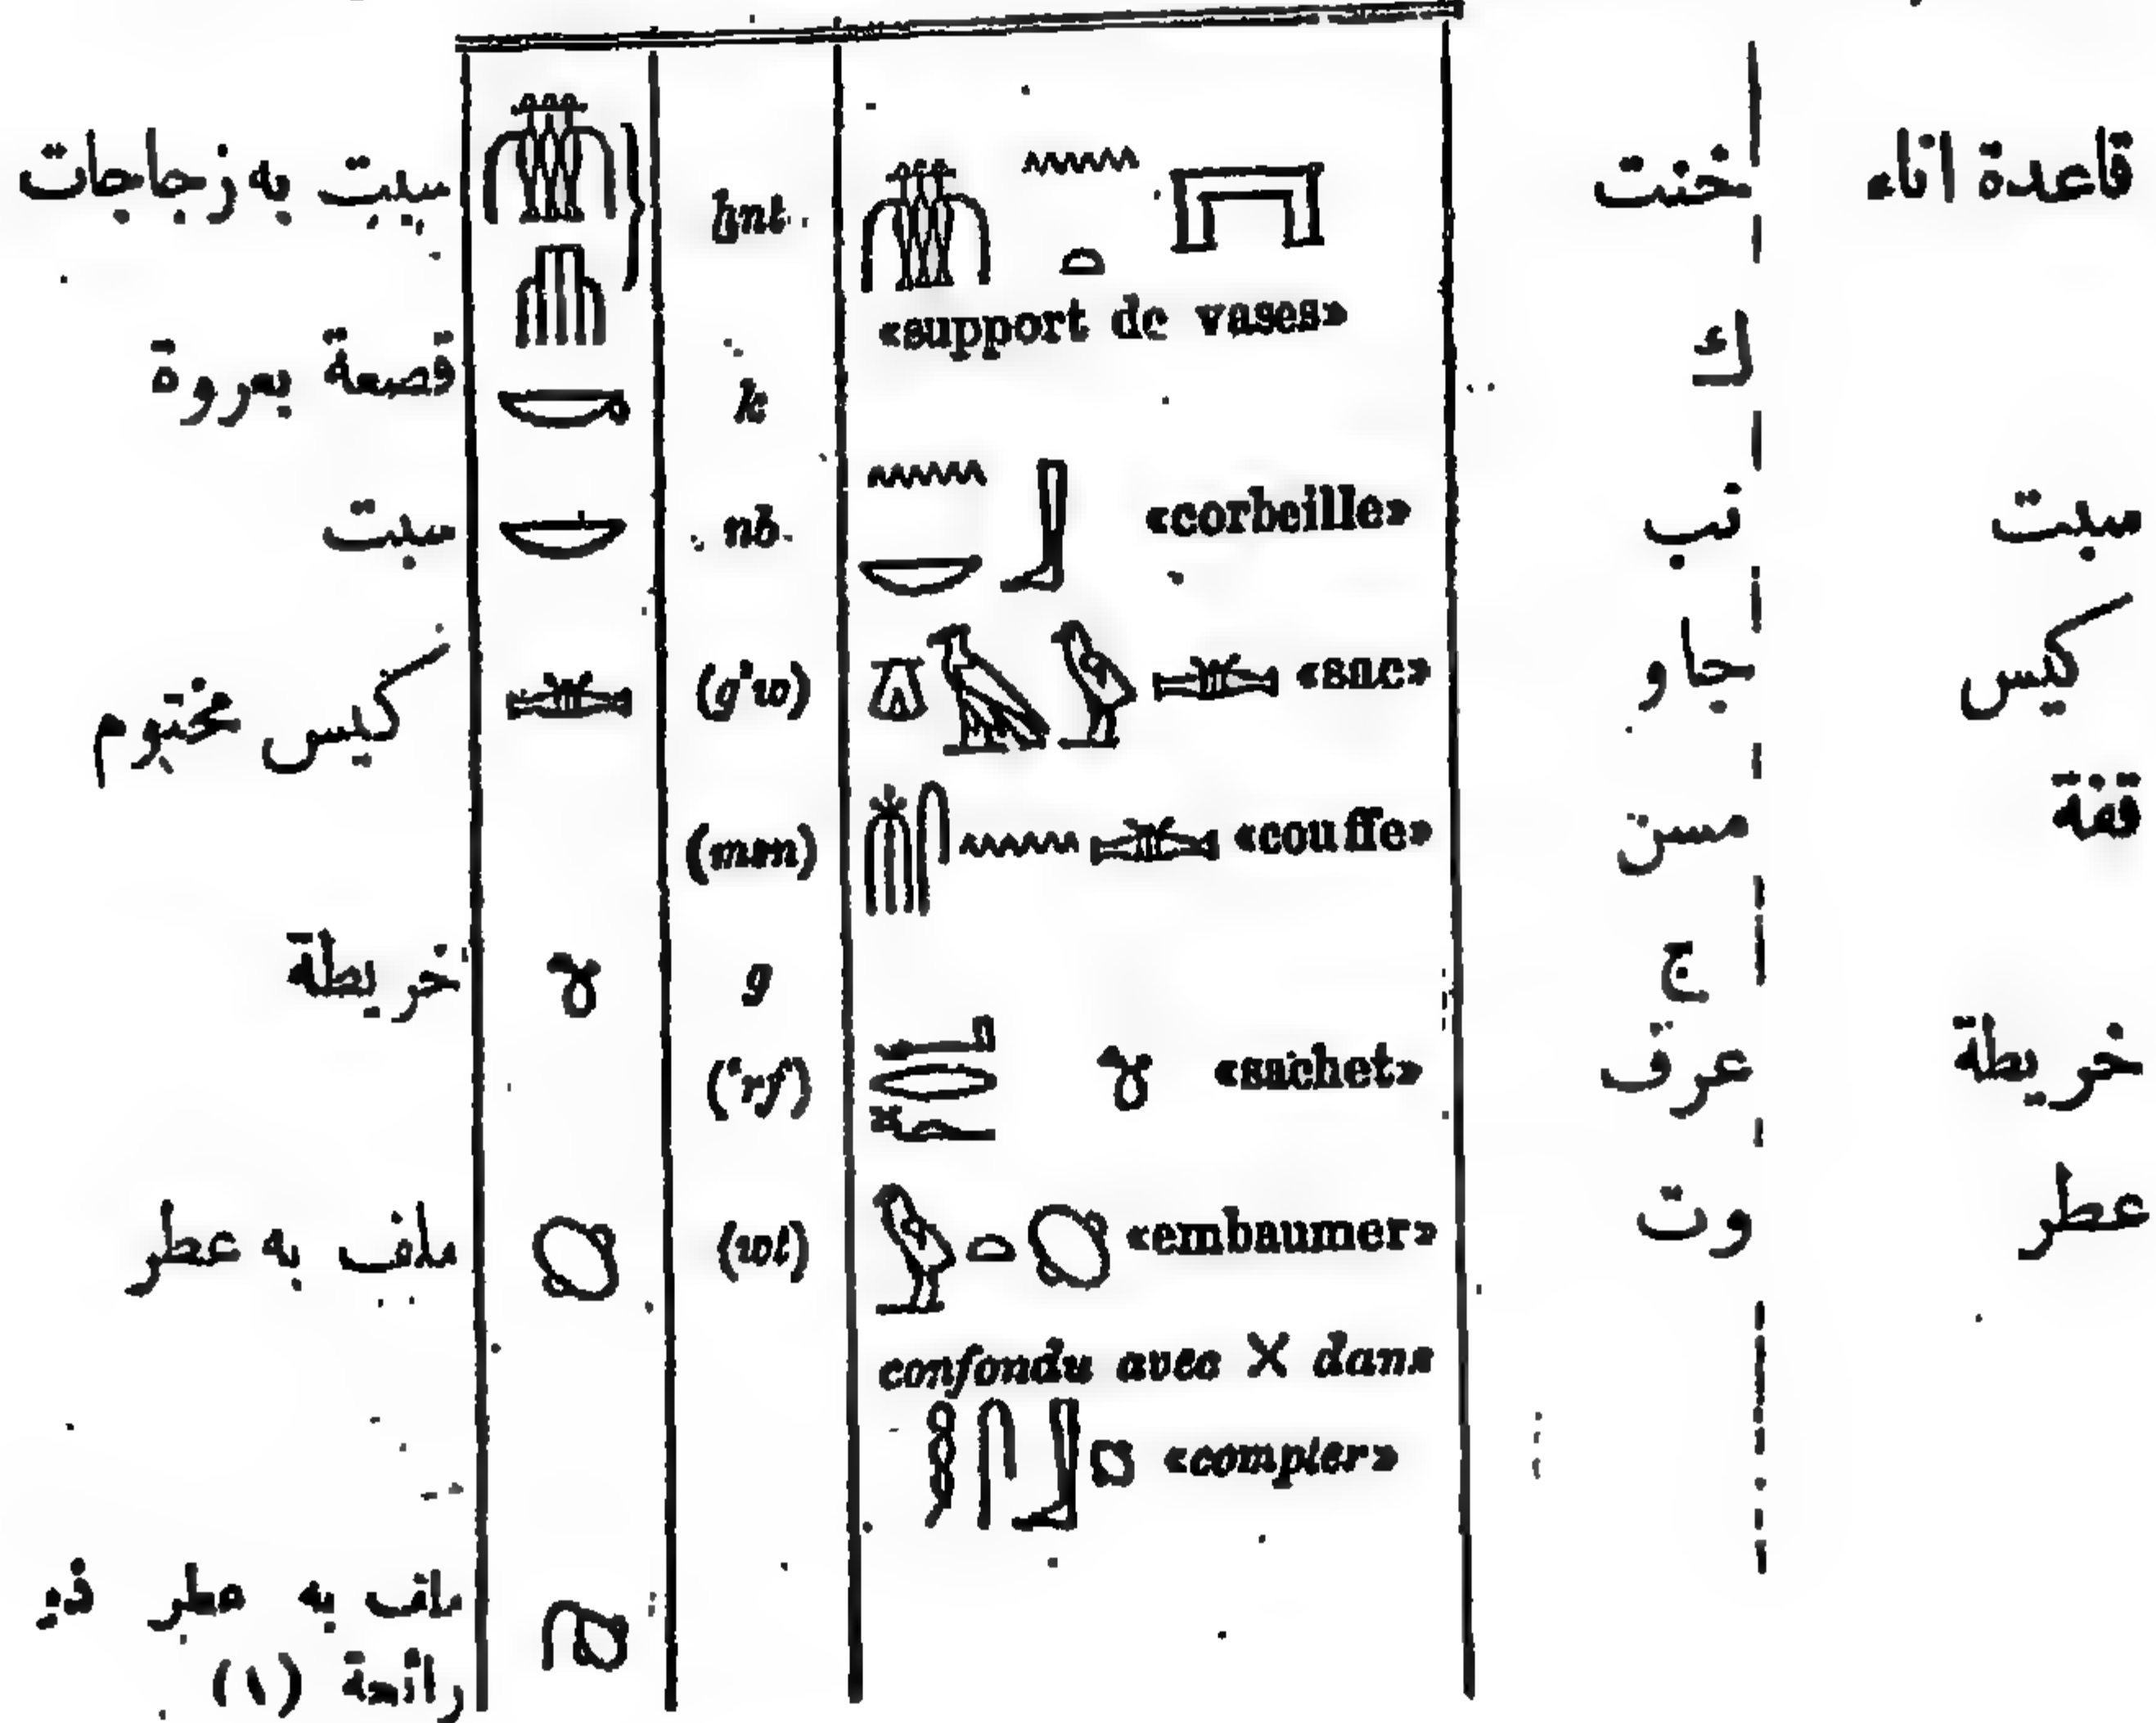 سبت به زجاجات ḫnt 𓏃 𓈖 𓏏 «support de vases» خنت قاعدة اناء
قصعة بعروة 𓎡 k ك
سبت 𓎟 nb 𓈖 𓎟 𓃀 «corbeille» نب سبت
كيس مختوم (g'w) 𓎼 𓄿 𓅱 «sac» جاو كيس
(msn) 𓄟 𓋴 𓈖 «couffe» مسن قفة
خريطة g ج
('rf) 𓂝 𓂋 𓆑 «sachet» عرف خريطة
ملف به عطر (wt) 𓅱 𓏏 «embaumer» وت عطر
confondu avec X dans
𓎛 𓋴 𓃀 «compter»
ملف به عطر ذو
رائحة (١)